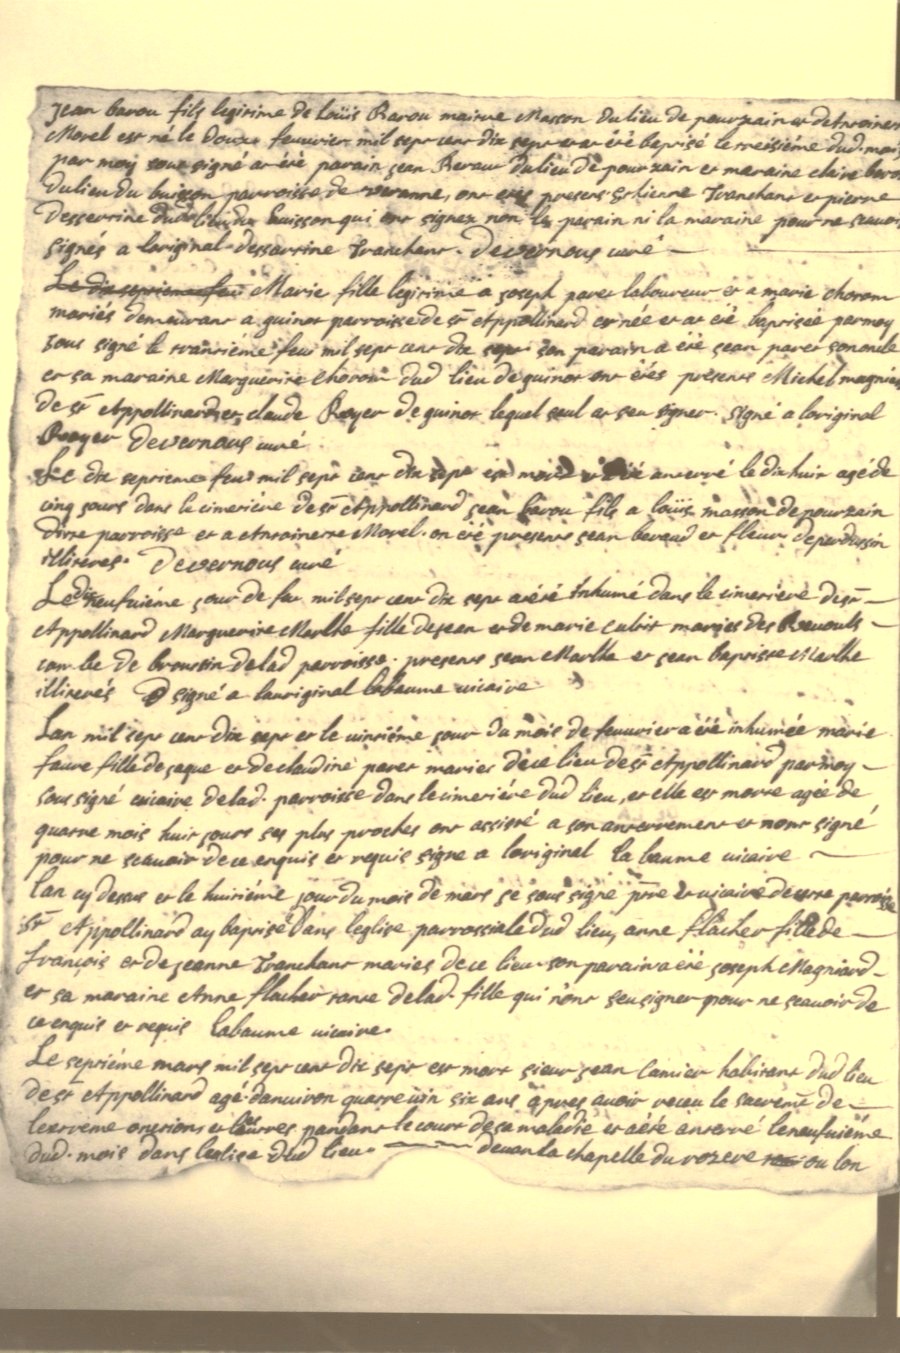 Jean barou fils legitime de Loüis Barou maitre Masson du lieu de pourzain et de
Morel est né le fevurier mil sept cent dix sept et at été baptisé le treisiéme dud. mois
par moy sous signé at été parain jean Beraut du lieu de pourzain et maraine claire barou
du lieu du buisson parroisse de veranne, ont etés presens Estienne Tranchant et pierre
Dessertine dud. lieu du buisson qui ont signez non le parain ni la maraine pour ne scavoir
signés a loriginal Dessertine Tranchant. Devernous curé
Le dix septieme feu Marie fille legitime a joseph paret laboureur et a marie chorom
mariés demeurant a guinot parroisse de st Appollinard est née et at été baptisée par moy
sous signé le trantiéme feu mil sept cent dix sept son parain a été jean paret son oncle
et sa maraine Marguerite chorom dud lieu de guinot ont étés présents Michel magniard
de st Appollinard et claude Royer de guinot lequel seul at seu signer. Signé a loriginal
Royer Devernous curé
Le dix septieme feur mil sept cent dix sept est mort et été anterré le dix huit agé de
cinq jours dans le cimetiére de st Appollinard jean barou fils a loüis masson de pourzain
ditte parroisse et a Antoinette Morel. on été presents jean beraud et fleur
illiteres. Devernous curé
Le dix neufuiéme jour de feu mil sept cent dix sept a été Inhumé dans le cimetiére de st
Appollinard Marguerite Marthe fille de jean et de marie cubit mariés des
combe de broussin de lad parroisse. presents jean Marthe et jean baptiste Marthe
illiterés signé a lauriginal labaume vicaire
Lan mil sept cent dix sept et le vintiéme jour du mois de fevurier a été inhumée marie
faure fille de jaque et de claudine paret maries de ce lieu de st Appollinard par moy
sous signé vicaire de lad. parroisse dans le cimetiére dud lieu, et elle est morte agée de
quatre mois huit jours ses plus proches ont assisté a son anterrement et nont signé
pour ne scavoir de ce enquis et requis signe a loriginal la baume vicaire
Lan cy dessus et le huitiéme jour du mois de mars je sous signé ptre et vicaire de cette parroisse
st Appollinard ay baptisé dans leglise parrossiale dud lieu, anne flacher fille de
françois et de jeanne Tranchant maries de ce lieu. son parain a été joseph Magniard
et sa maraine Anne flacher tante de lad. fille qui n'ont seu signer pour ne scavoir de
ce enquis et requis labaume vicaire.
Le septiéme mars mil sept cent dix sept est mort sieur jean lamier habitant dud lieu
de st Appollinard agé danviron quatre vin six ans apres avoir receu le sacremt de
lextreme onctions et les autres pandant le cours de sa maladie et a été anterré le neufuiéme
dud. mois dans leglise dud lieu. devan la chapelle du rozere ou lon